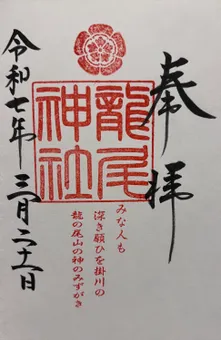 奉拝
龍尾
神社
みな人も
深き願ひを掛川の
龍の尾山の神のみずがき
令和七年 三月二十一日